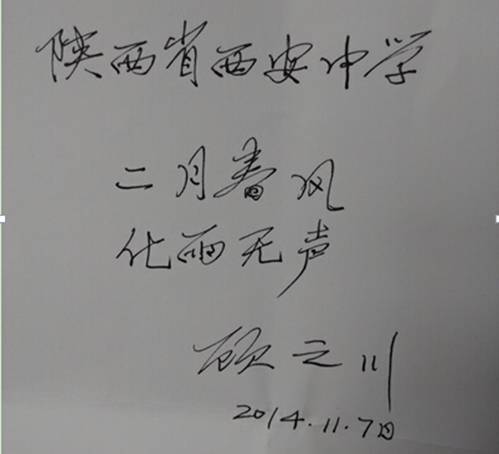 陕西省西安中学
二月春风
化雨无声
顾之川
2014.11.7日